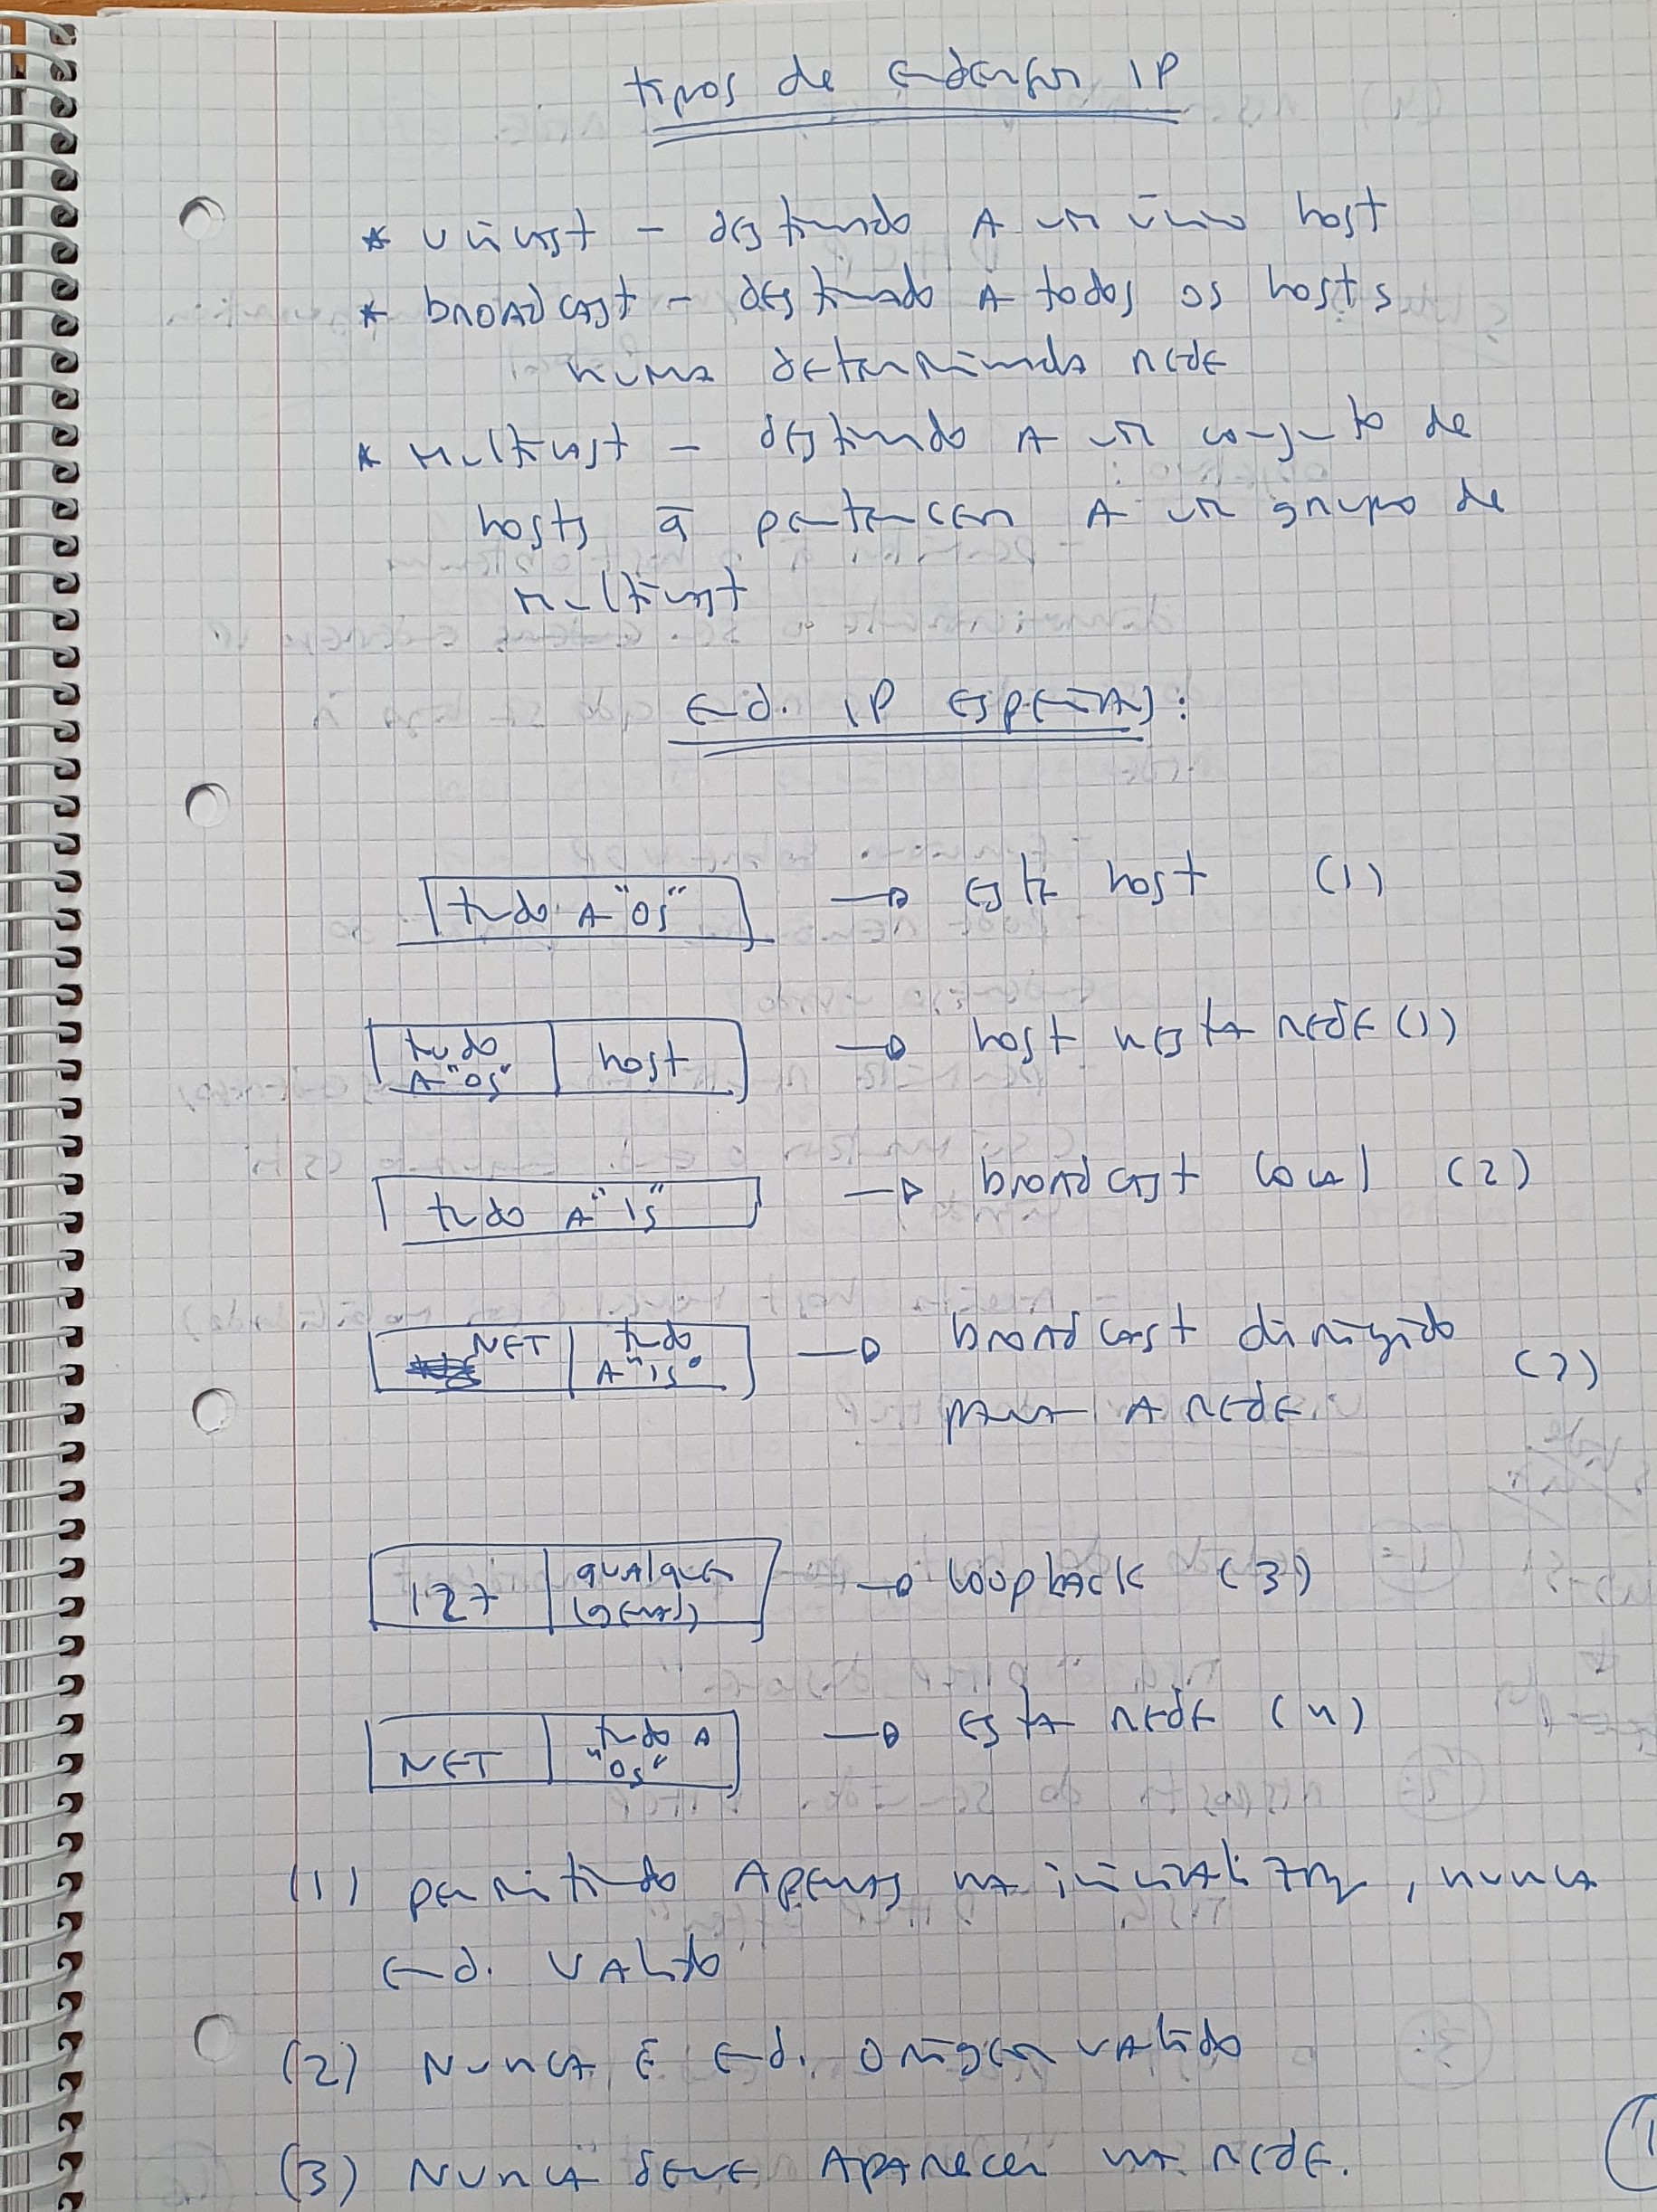 tipos de endereços IP
* unicast - destinado A um único host
* broadcast - destinado A todos os hosts
numa determinada rede
* Multicast - destinado A um conjunto de
hosts q̄ pertencem A um grupo de
Multicast
End. IP Especiais:
tudo A "0s" → este host (1)
tudo A "0s" | host → host nesta rede (1)
tudo A "1s" → broadcast local (2)
NET | tudo A "1s" → broadcast dirigido
para A rede. (2)
127 | qualquer (geral) → loopback (3)
NET | tudo A "0s" → esta rede (4)
(1) permitido Apenas na inicialização, nunca
end. válido
(2) Nunca é end. origem válido
(3) Nunca deve Aparecer na rede.